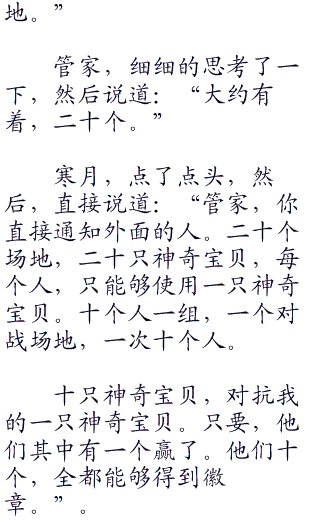 地。”
管家，细细的思考了一
下，然后说道：“大约有
着，二十个。”
寒月，点了点头，然
后，直接说道：“管家，你
直接通知外面的人。二十个
场地，二十只神奇宝贝，每
个人，只能够使用一只神奇
宝贝。十个人一组，一个对
战场地，一次十个人。
十只神奇宝贝，对抗我
的一只神奇宝贝。只要，他
们其中有一个赢了。他们十
个，全都能够得到徽
章。”。